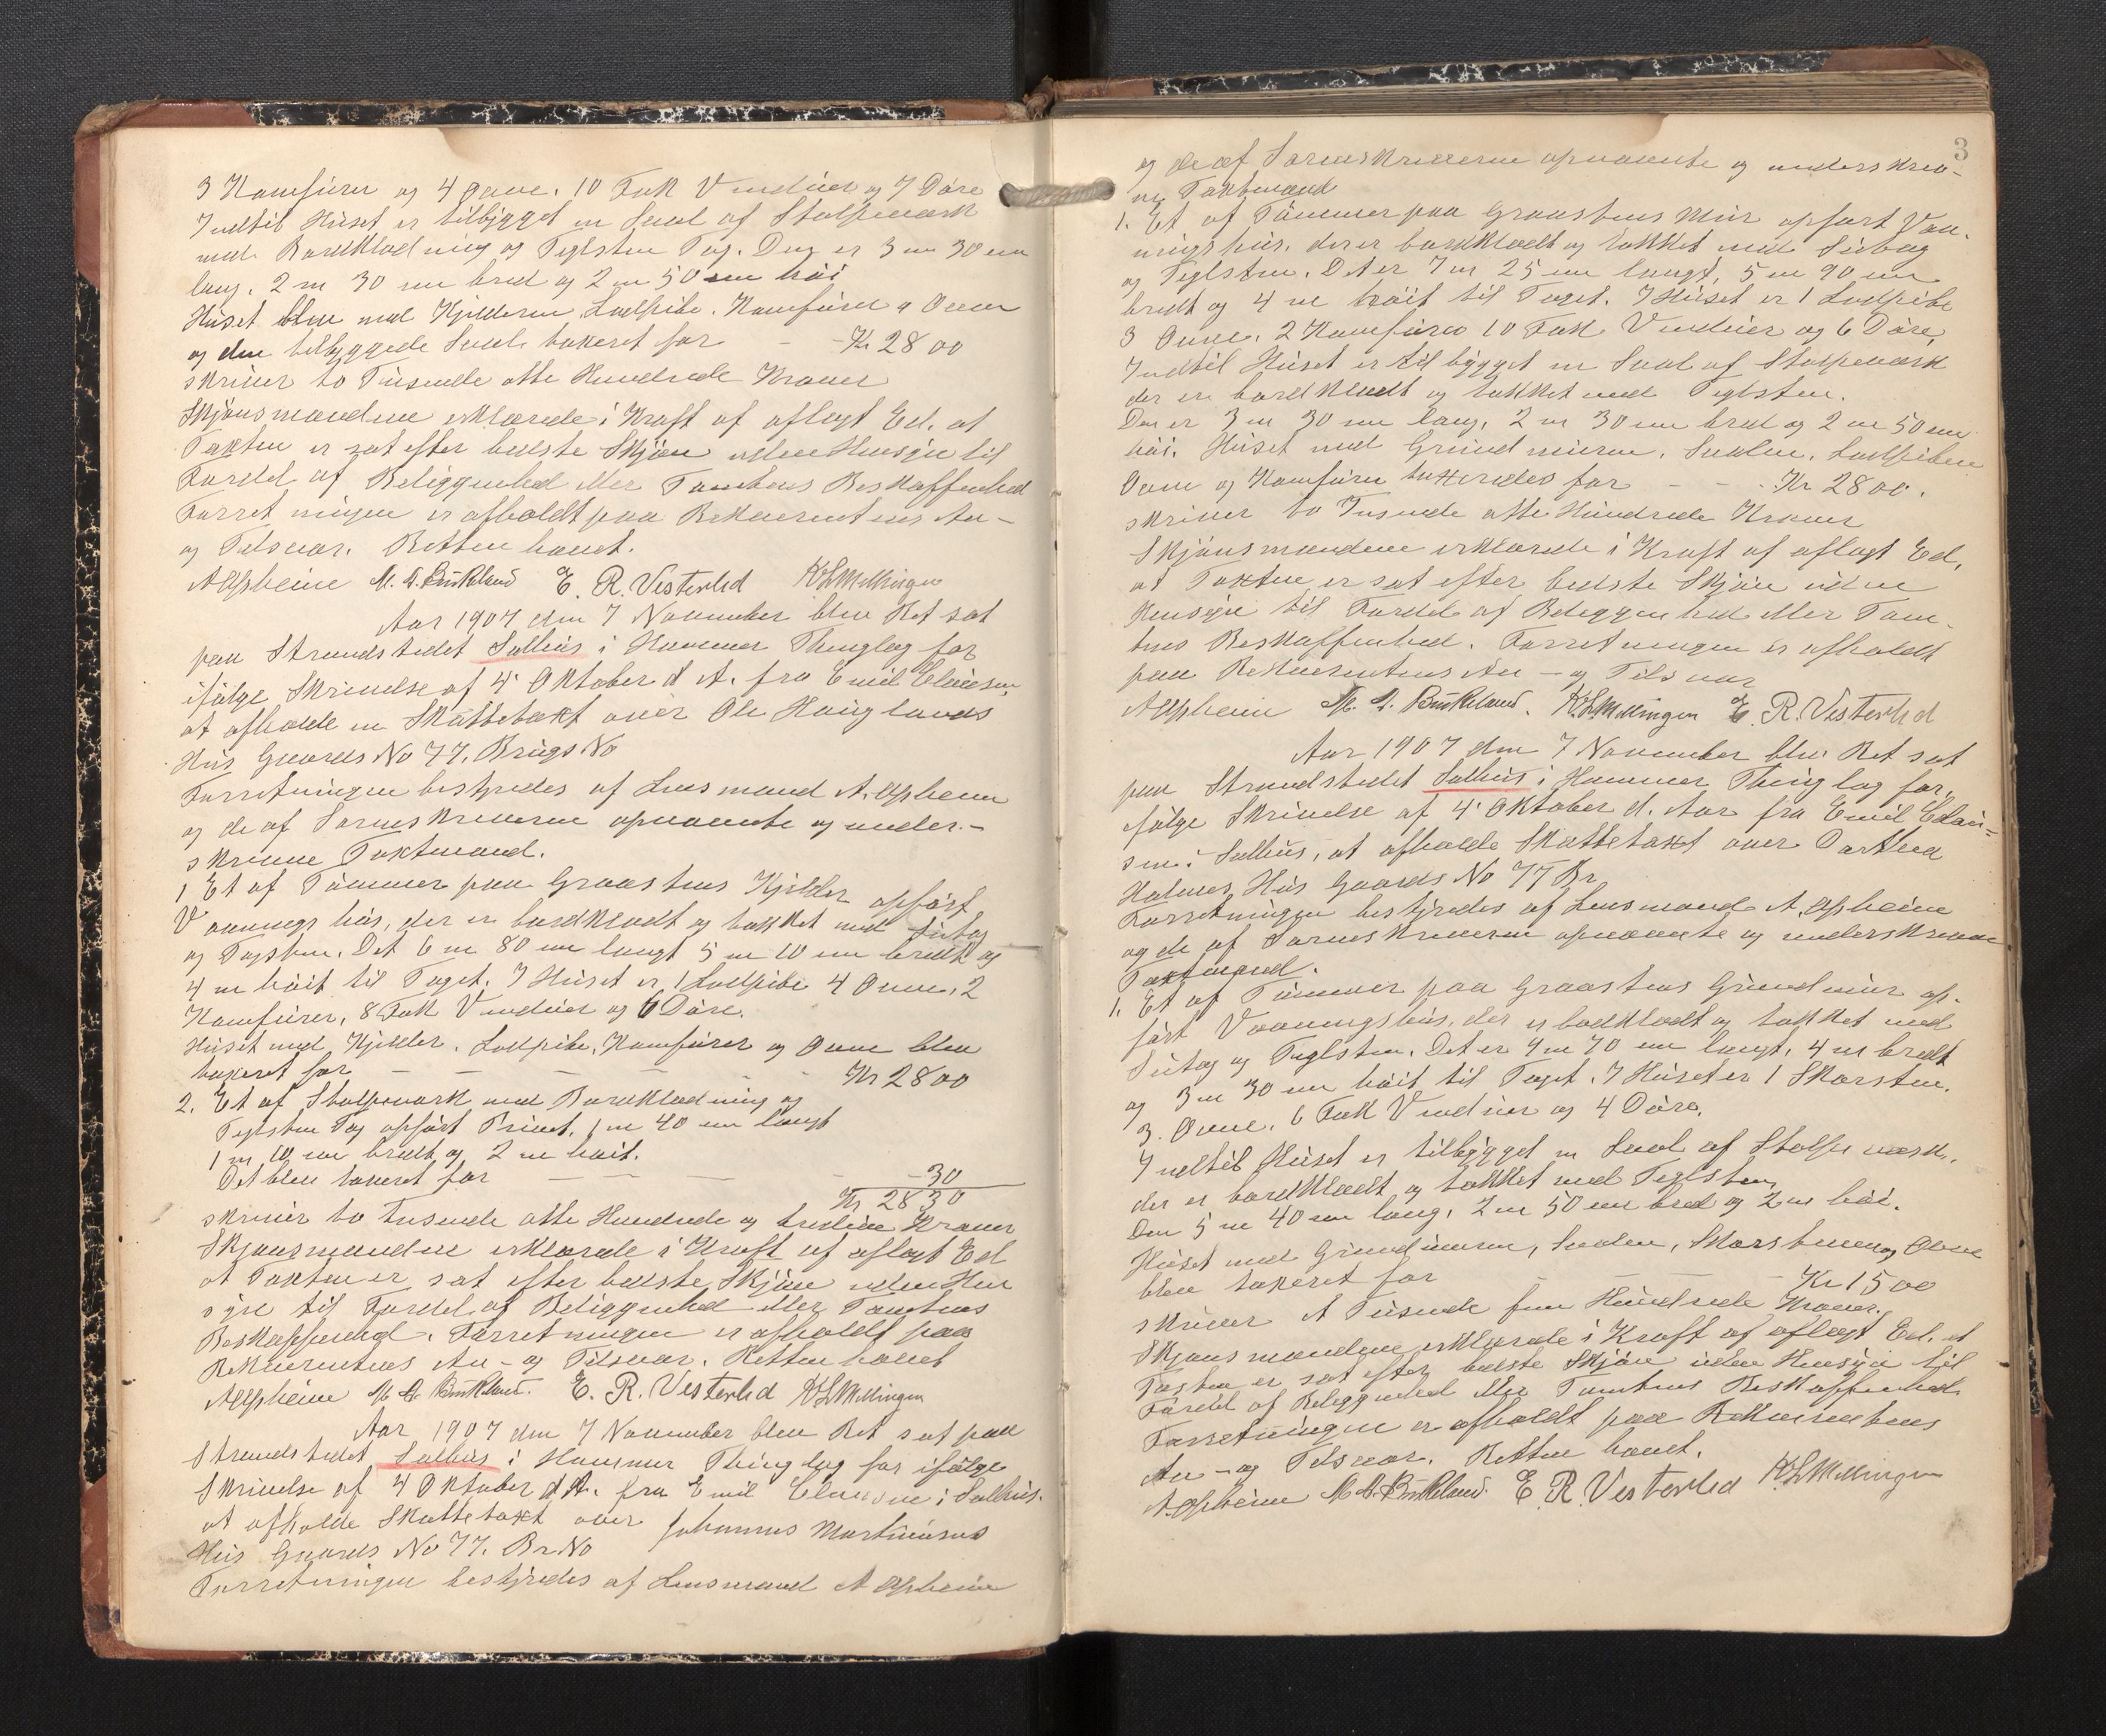 3 Komfürer og 4 Ovne. 10 Fak Vinduer og 7 Döre
Indtil Huset er tilbygget en Sval af Stolpeværk
med Bordklædning og Teglsten Tag. Den er 3 m 30 cm
lang, 2 m 30 cm bred og 2 m 50 cm höi
Huset blev med Kjelderen, Lodpibe, Komfürer & Ovner
og den tilbyggede Sval taxeret for - - Kr 2800
skriver to Tusende otte Hundrede Kroner
Skjönsmændene erklærede i Kraft af aflagt Ed, at
Taxten er sat efter bedste Skjön uden Hensyn til
Fordel af Beliggenhed eller Tomtens Beskaffenhed
Forretningen er afholdt paa Rekvirentens An-
og Tilsvar. Retten hævet.
A Espheim M. A. Birkeland E. R. Vesterlid K L Mellingen
Aar 1907 den 7 November blev Ret sat
paa Strandstedet Salhus i Hammer Thinglag for
ifölge Skrivelse af 4' Oktober d. A. fra Emil Clausen
at afholde en Skattetaxt over Ole Hauglands
Hus Gaards No 77. Brugs No
Forretningen bestyredes af Lensmand A. Espheim
og de af Sorenskriveren opnævnte og under-
skrevne Taxtmænd.
1 Et af Tömmer paa Graastens Kjelder opfört
Vaaningshus, der er bordklædt og tækket med Sutag
og Tagsten. Det 6 m 80 cm langt 5 m 10 cm bredt og
4 m höit til Taget. I Huset er 1 Lodpibe 4 Ovne, 2
Komfürer, 8 Fak Vinduer og 6 Döre.
Huset med Kjelder, Lodpibe, Komfürer og Ovne blev
taxeret for - - - - - Kr 2800
2. Et af Stolpeværk med Bordklædning og
Teglsten Tag opfört Privet, 1 m 40 cm langt
1 m 10 cm bredt og 2 m höit.
Det blev taxeret for - - - - 30
Kr 2830
skriver to Tusende otte Hundrede og tredive Kroner
Skjönsmændene erklærede i Kraft af aflagt Ed
at Taxten er sat efter bedste Skjön uden Hen
syn til Fordel af Beliggenhed eller Tomtens
Beskaffenhed. Forretningen er afholdt paa
Rekvirentens An- og Tilsvar. Retten hævet
A Espheim M A Birkeland. E. R. Vesterlid K L Mellingen
Aar 1907 den 7 November blev Ret sat paa
Strandstedet Salhus i Hammer Thinglag for ifölge
Skrivelse af 4 Oktober d. A. fra Emil Clausen i Salhus.
at afholde Skattetaxt over Johannes Martinusens
Hus Gaards No 77. Br No
Forretningen bestyredes af Lensmand A Espheim
3
og de af Sorenskriveren opnævnte og underskrev-
ne Taxtmænd
1. Et af Tömmer paa Graastens Mur opfört Vaa-
ningshus, der er bordklædt og tækket med Sutag
og Teglsten. Det er 7 m 25 cm langt, 5 m 90 cm
bredt og 4 m höit til Taget. I Huset er 1 Lodpibe
3 Ovne. 2 Komfürer 10 Fak Vinduer og 6 Döre,
Indtil Huset er tilbygget en Sval af Stolpeværk
der er bordklædt og tækket med Teglsten.
Den er 3 m 30 cm lang, 2 m 30 cm bred og 2 m 50 cm
höi. Huset med Grundmuren, Svalen, Lodpiben
Ovne og Komfürer taxeredes for - - - Kr 2800.
skriver to Tusende otte Hundrede Kroner
Skjönsmændene erklærede i Kraft af aflagt Ed,
at Taxten er sat efter bedste Skjön uden
Hensyn til Fordel af Beliggenhed eller Tom-
tens Beskaffenhed. Forretningen er afholdt
paa Rekvirentens An- og Tilsvar
A Espheim M. A. Birkeland. K. L. Mellingen E. R. Vesterlid
Aar 1907 den 7 November blev Ret sat
paa Strandstedet Salhus i Hammer Thinglag for,
ifölge Skrivelse af 4' Oktober d. Aar fra Emil Claú-
sen i Salhus, at afholde Skattetaxt over Dorthea
Holmes Hus Gaards No 77 Br
Forretningen bestyredes af Lensmand A. Espheim
og de af Sorenskriveren opnævnte og underskrevne
Taxtmænd.
1. Et af Tömmer paa Graastens Grundmur op-
fört Vaaningshus, der er bordklædt og tækket med
Sutag og Teglsten. Det er 4 m 70 cm langt, 4 m bredt
og 3 m 30 cm höit til Taget. I Huset er 1 Skorsten.
3. Ovne. 6 Fak Vinduer og 4 Döre.
Indtil Huset er tilbygget en Sval af Stolpeværk,
der er bordklædt og tækket med Teglsten,
Den 5 m 40 cm lang, 2 m 50 cm bred og 2 m höi.
Huset med Grundmuren, Svalen, Skorstenen og Ovne
blev taxeret for - - - Kr 1500
skriver et Tusende fem Hundrede Kroner.
Skjönsmændene erklærede i Kraft af aflagt Ed, at
Taxten er sat efter bedste Skjön uden Hensyn til
Fordel af Beliggenhed eller Tomtens Beskaffenhed
Forretningen er afholdt paa Rekvirentens
An- og Tilsvar. Retten hævet.
A. Espheim M A. Birkeland E. R. Vesterlid K L Mellingen